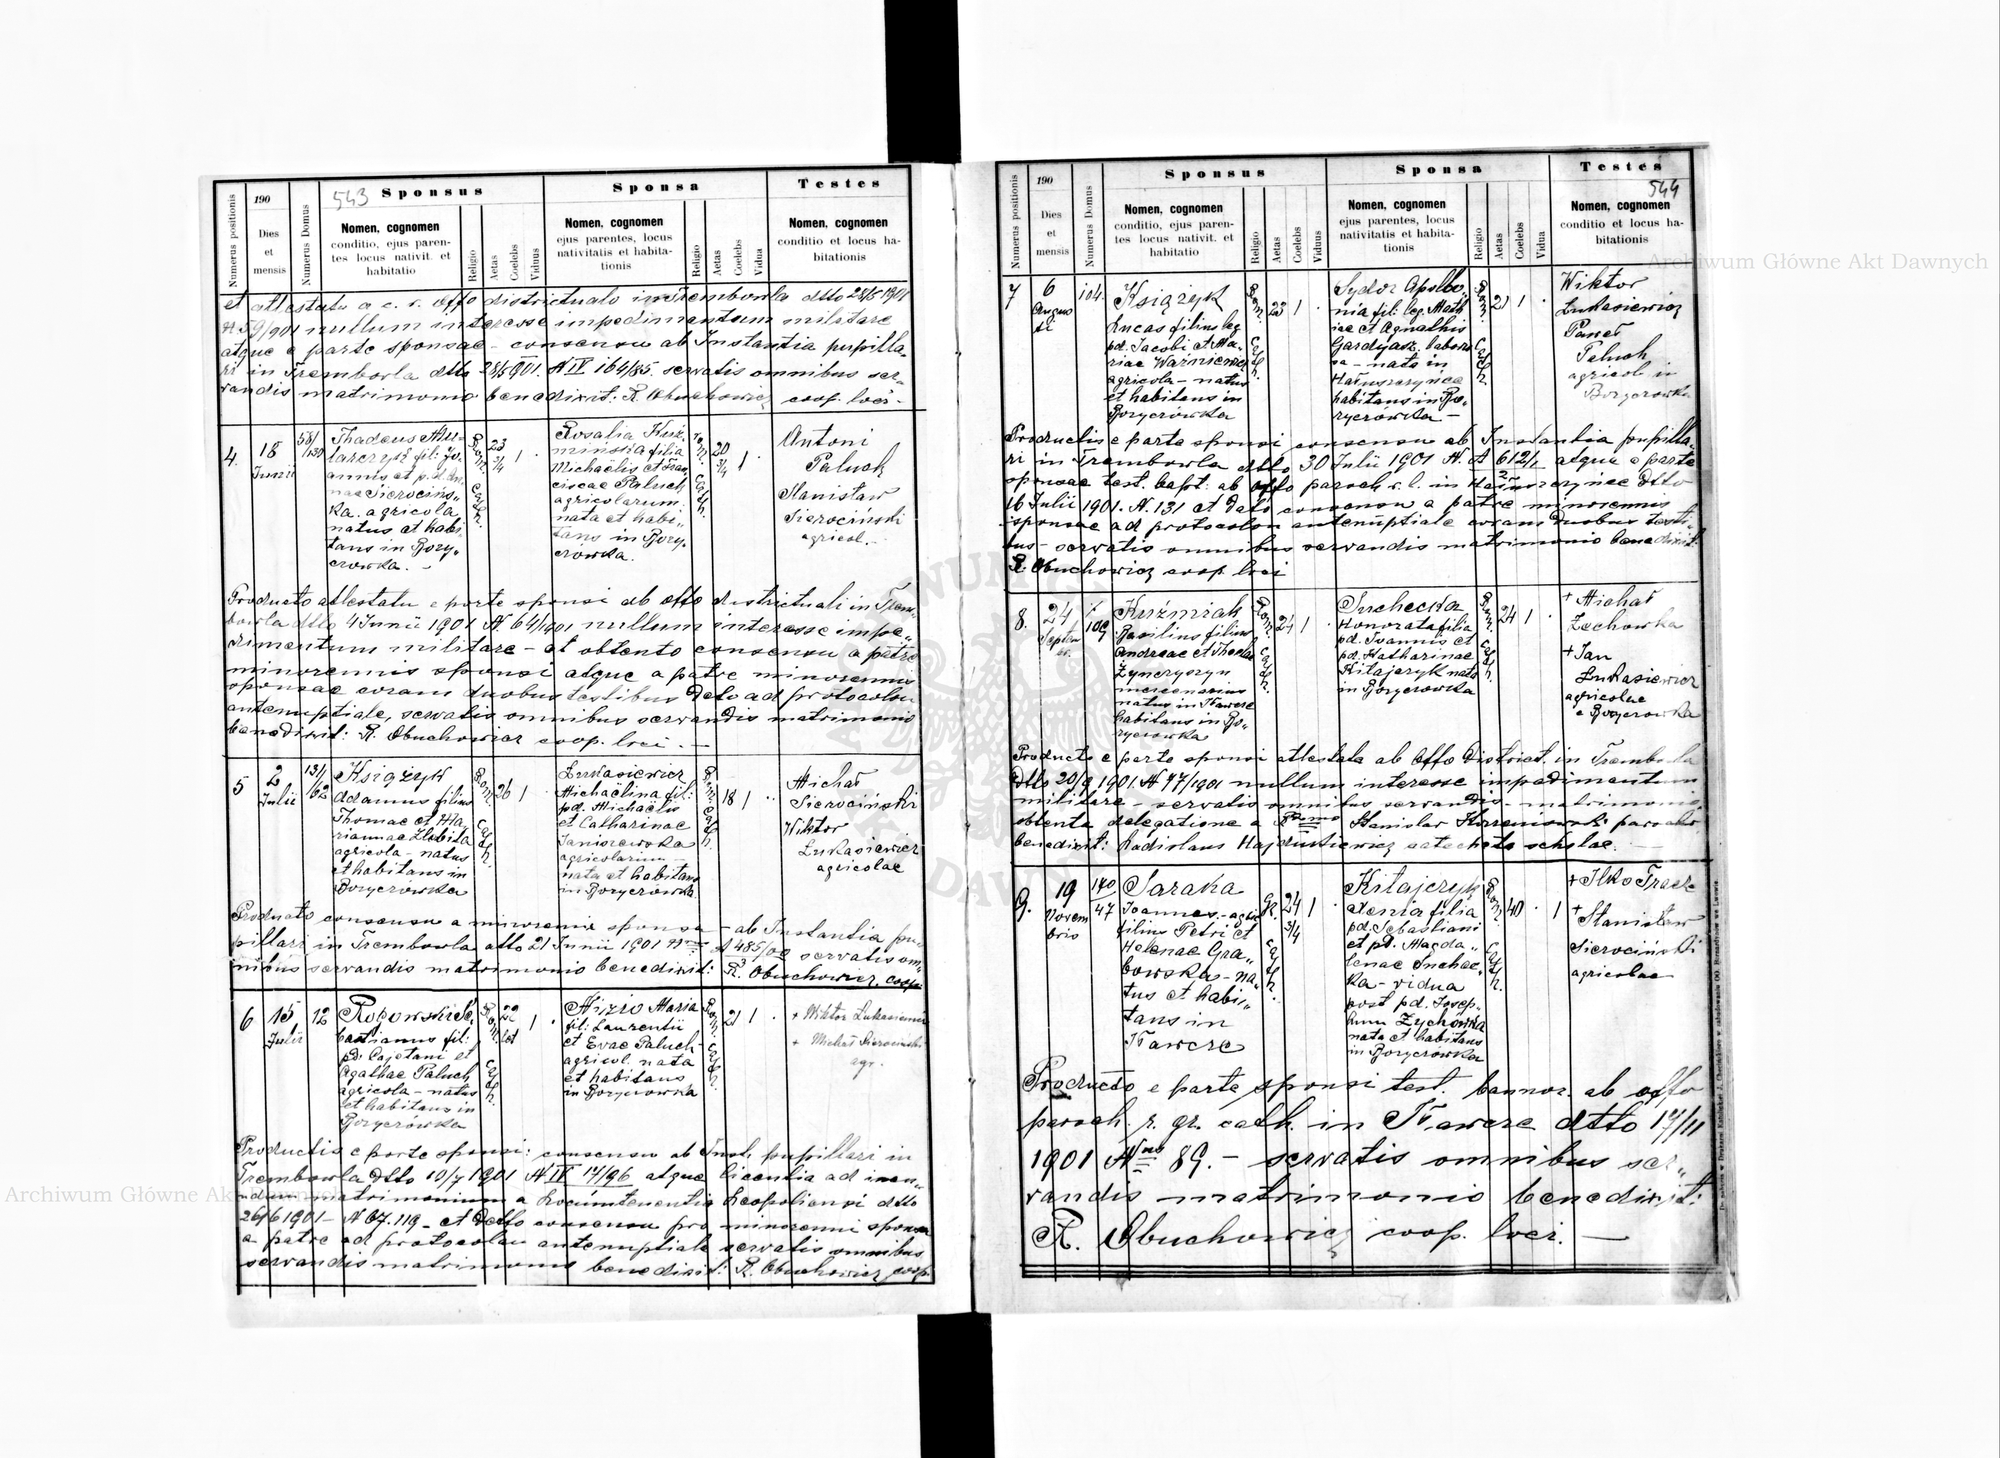 543
Numerus positionis
190
Dies
et
mensis
Numerus Domus
Sponsus
Nomen, cognomen
conditio, ejus paren-
tes locus nativit. et
habitatio
Religio
Aetas
Coelebs
Viduus
Sponsa
Nomen, cognomen
ejus parentes, locus
nativitatis et habita-
tionis
Religio
Aetas
Coelebs
Vidua
Testes
Nomen, cognomen
conditio et locus ha-
bitationis
et attestatu a c. r. offo districtuale in Trembowla dtto 28/5 1901
N 59/901 nullum interesse impedimentum militare
atque e parte sponsae - consensu ab Instantia pupilla-
ri in Trembowla dtto 28/5 901. N IV 164/85. servatis omnibus ser-
vandis matrimonio benedixit: R. Obuchowicz coop. loci -
4.
18
Junii
58/
/130
Thadeus
larczyk fil: Jo-
annis et
nae Sierocińs-
ka. agricola
natus et habi-
tans in Bory-
czowka. -
Rom. Cath.
23
3/4
1
Rosalia Kuź-
mińska filia
Michaelis et Fran-
ciscae Paluch
agricolarum
nata et habi-
tans in Bory-
czowka.
rom. Cath.
20
3/4
1
Antoni
Paluch
Stanisław
Sierociński
agricol. -
Producto attestatu e parte sponsi ab offo districtuali in Trem-
bowla dtto 4 Junii 1901 N. 64/1901 nullum interesse impe-
dimentum militare - et obtento consensu a patre
minorennis sponsi atque a patre minorennis
sponsae coram duobus testibus dato ad protocolon
antenuptiale, servatis omnibus servandis matrimonio
benedixit: R. Obuchowicz coop. loci. -
5
2
Julii
131/
/62
Książyk
Adamus filius
Thomae et Ma-
riannae Zlobita
agricola - natus
et habitans in
Boryczówka
Rom. Cath.
26
1
Łukasiewicz
Michaëlina fil:
pd. Michaëlis
et Catharinae
Janiszewska
agricolarum -
nata et habitans
in Boryczówka
Rom. Cath.
18
1
Michał
Sierociński
Wiktor
Łukasiewicz
agricolae
Producto consensu a minorennis sponsa - ab Instantia pu-
pillari in Trembowla dtto 21 Junii 1901 servatis om-
nibus servandis matrimonio benedixit: R. Obuchowicz. coop.
6
15
Julii
12
Rogowski Se-
bastianus fil:
pd. Cajetani et
Agathae Paluch
agricola - natus
et habitans in
Boryczówka
Rom. Cath.
22
1
Mizio Maria
fil: Laurentii
et Evae Paluch -
agricol. nata
et habitans
in Boryczówka
Rom. Cath.
21
1
+ Wiktor Łukasiewicz
+ Michał Sierociński
agr.
Productis e parte sponsi: consensu ab Inst. pupillari in
Trembowla dtto 10/7 1901 N IV 17/96 atque licentia ad ineun-
dum matrimonium a Locumtenentia Leopoliensi dtto
26/6 1901 - N 67.119 - et dtto consensu pro minorenni sponsa
a patre ad protocolon antenuptiale servatis omnibus
servandis matrimonio benedixit: R. Obuchowicz coop.
544
Numerus positionis
190
Dies
et
mensis
Numerus Domus
Sponsus
Nomen, cognomen
conditio, ejus paren-
tes locus nativit. et
habitatio
Religio
Aetas
Coelebs
Viduus
Sponsa
Nomen, cognomen
ejus parentes, locus
nativitatis et habita-
tionis
Religio
Aetas
Coelebs
Vidua
Testes
Nomen, cognomen
conditio et locus ha-
bitationis
7
6
Augus
ti
104.
Książyk
Lucas filius leg
pd. Jacobi et Ma-
riae Waźniewicz
agricola - natus
et habitans in
Boryczówka
Rom. Cath.
23
1
Sydor Apollo-
nia fil: leg. Math
iae et Agnathis
Gardyjask. laborio
sa - nata in
Hałuszczyńce
habitans in Bo-
ryczówka -
Rom. Cath.
21
1
Wiktor
Łukasiewicz
Paweł
Paluch
agricol. in
Boryczowka
Productis e parte sponsi consensu ab Instantia pupilla-
ri in Trembowla dtto 30 Julii 1901 N. A 612/1 atque e parte
sponsae test. bapt: ab offo paroch r. l. in Hałuszczyńce dtto
16 Julii 1901. N. 131 et dato consensu a patre minorennis
sponsae ad protocolon antenuptiale coram duobus testi-
bus - servatis omnibus servandis matrimonio benedixit:
R. Obuchowicz coop. loci
8.
24
Septem
br.
109
Kuźmiak
Basilius filius
Andreae et Theclae
Żynczyszyn
mercenarius
natus in Iławcze
habitans in Bo-
ryczowka
Rom. Cath.
24
1
Suchecka
Honorata filia
pd. Joannis et
pd. Katharinae
Kitajczyk nata
in Boryczowka
Rom. Cath.
24
1
+ Michał
Żechowka
+ Jan
Łukasiewicz
agricolae
e Boryczowka
Producto e parte sponsi attestatu ab offo District. in Trembowla
dtto 20/9 1901. N 77/1901 nullum interesse impedimentum
militare - servatis omnibus servandis - matrimonio,
obtenta delegatione a Stanislao parocho,
benedixit: Ladislaus Hajdukiewicz catecheta scholae. -
9.
19
Novem
bris
170
47
Saraka
Joannes. - agric.
filius Petri et
Helenae Gra-
bowska - na-
tus et habi-
tans in
Iławcze
Gr. Cath.
24
3/4
1
Kitajczyk
Xenia filia
pd. Sebastiani
et pd. Magda-
lenae Suchec-
ka - vidua
post pd. Josep-
hum Żychówka
nata et habitans
in Boryczówka
Rom. Cath.
40
1
+ Ilko Tracz
+ Stanisław
Sierociński
agricolae
Producto e parte sponsi test. bannor. ab offo
paroch. r. gr. cath. in Iławcze dtto 17/11
1901 Nro 89. - servatis omnibus ser-
vandis matrimonio benedixit:
R. Obuchowicz coop. loci. -
Archiwum Główne Akt Dawnych
Archiwum Główne Akt Dawnych